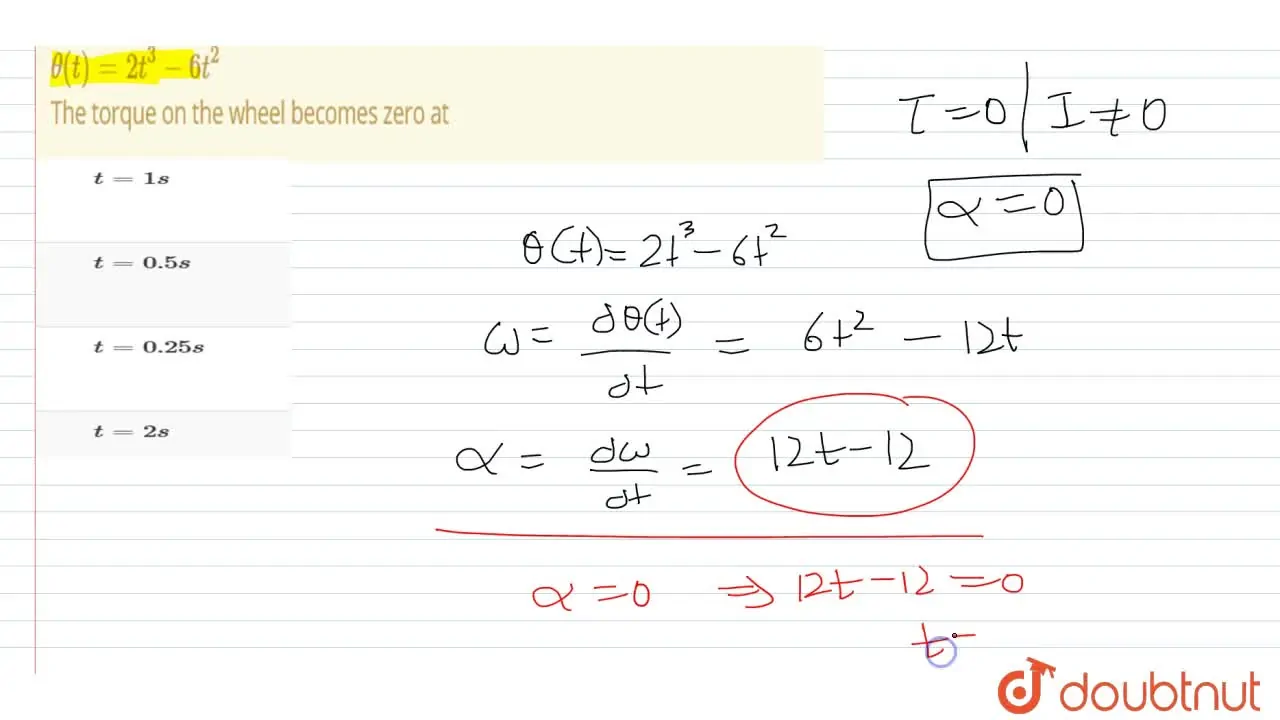 θ(t) = 2t³ − 6t²
The torque on the wheel becomes zero at
t = 1s
t = 0.5s
t = 0.25s
t = 2s
τ = 0 | I ≠ 0
α = 0
θ(t) = 2t³ − 6t²
ω = dθ(t)/dt = 6t² − 12t
α = dω/dt = 12t − 12
α = 0 ⇒ 12t − 12 = 0
t −
doubtnut